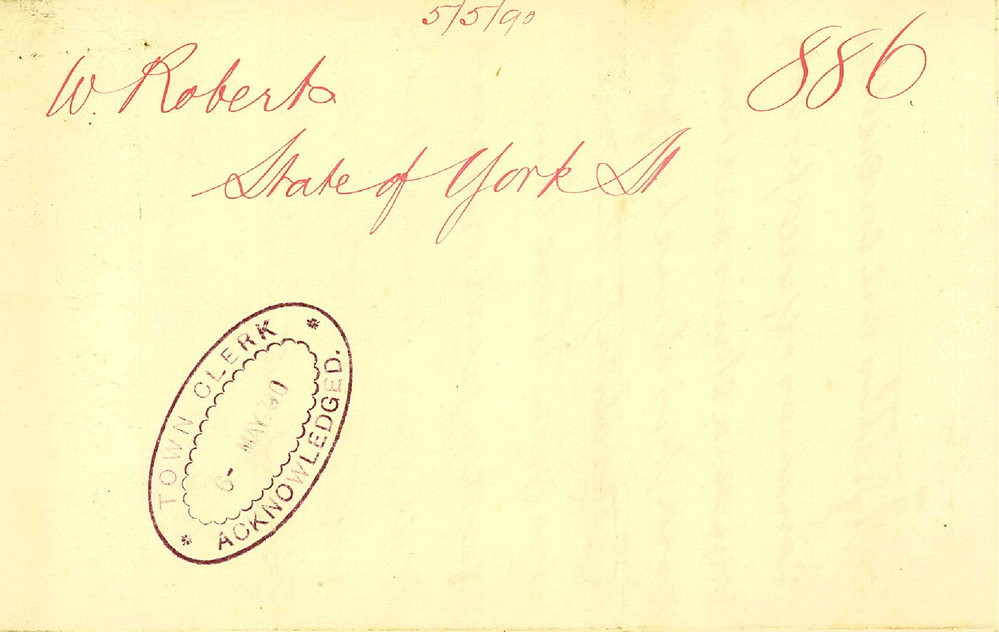 5/5/90
W. Roberts
886.
State of York St
TOWN CLERK
6- MAY.90
ACKNOWLEDGED.